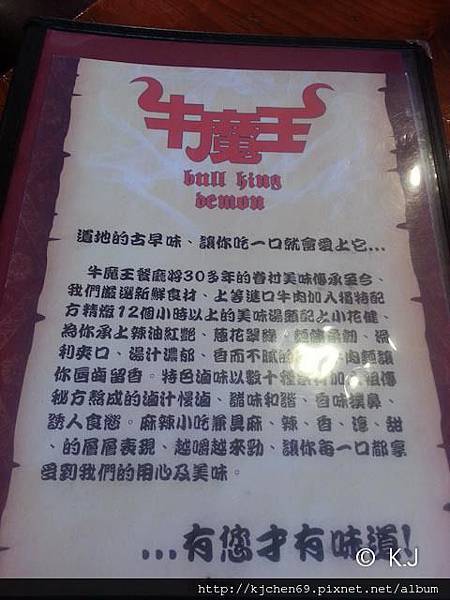 牛魔王
bull king
demon
道地的古早味、讓你吃一口就會愛上它...
牛魔王餐廳將30多年的眷村美味傳承至今、
我們嚴選新鮮食材、上等進口牛肉加入獨特配
方精燉12個小時以上的美味湯頭配上小花健、
為你承上辣油紅艷、蔥花翠綠、麵條柔韌、滑
利爽口、湯汁濃郁、香而不膩的 肉麵讓
你唇齒留香。特色滷味以數十種 加 祖傳
秘方熬成的滷汁慢滷、醬味和諧、香味撲鼻、
誘人食慾。麻辣小吃兼具麻、辣、香、濃、甜
、的層層表現、越嚼越來勁、讓你每一口都享
受到我們的用心及美味。
...有您才有味道!
© K.J
http://kjchen69.pixnet.net/album